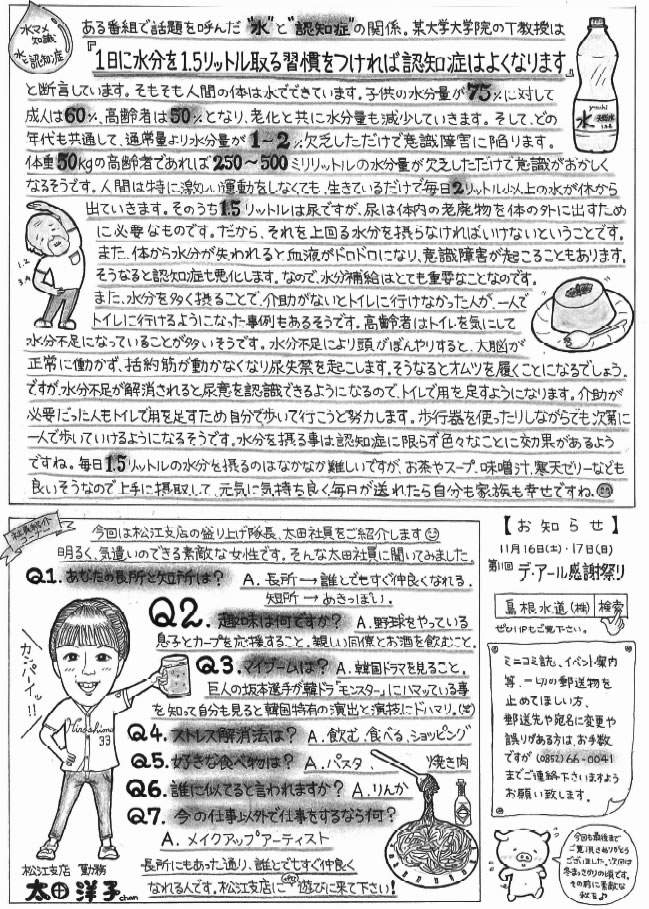 水マメ
知識
水と認知症
ある番組で話題を呼んだ"水"と"認知症"の関係。某大学大学院のT教授は
『1日に水分を1.5リットル取る習慣をつければ認知症はよくなります』
と断言しています。そもそも人間の体は水でできています。子供の水分量が75%に対して
成人は60%、高齢者は50%となり、老化と共に水分量も減少していきます。そして、どの
年代も共通して、通常量より水分量が1～2%欠乏しただけで意識障害に陥ります。
体重50kgの高齢者であれば250～500ミリリットルの水分量が欠乏しただけで意識がおかしく
なるそうです。人間は特に激しい運動をしなくても、生きているだけで毎日2リットル以上の水が体から
出ていきます。そのうち1.5リットルは尿ですが、尿は体内の老廃物を体の外に出すため
に必要なものです。だから、それを上回る水分を摂らなければいけないということです。
また、体から水分が失われると血液がドロドロになり、意識障害が起こることもあります。
そうなると認知症も悪化します。なので、水分補給はとても重要なことなのです。
また、水分を多く摂ることで、介助がないとトイレに行けなかった人が、一人で
トイレに行けるようになった事例もあるそうです。高齢者はトイレを気にして
水分不足になっていることが多いそうです。水分不足により頭がぼんやりすると、大脳が
正常に働かず、括約筋が動かなくなり尿失禁を起こします。そうなるとオムツを履くことになるでしょう。
ですが、水分不足が解消されると尿意を認識できるようになるので、トイレで用を足すようになります。介助が
必要だった人もトイレで用を足すため自分で歩いて行こうと努力します。歩行器を使ったりしながらでも次第に
一人で歩いていけるようになるそうです。水分を摂る事は認知症に限らず色々なことに効果があるよう
ですね。毎日1.5リットルの水分を摂るのはなかなか難しいですが、お茶やスープ、味噌汁、寒天ゼリーなども
良いそうなので上手に摂取して、元気に気持ち良く毎日が送れたら自分も家族も幸せですね。
水
1.2
3.4
社員紹介
コーナー
今回は松江支店の盛り上げ隊長、太田社員をご紹介します
明るく、気遣いのできる素敵な女性です。そんな太田社員に聞いてみました。
Q1. あなたの長所と短所は? A. 長所→誰とでもすぐ仲良くなれる。
短所→あきっぽい。
Q2. 趣味は何ですか? A. 野球をやっている
息子とカープを応援すること。親しい同僚とお酒を飲むこと。
Q3. マイブームは? A. 韓国ドラマを見ること。
巨人の坂本選手が韓ドラ「モンスター」にハマっている事
を知って自分も見ると韓国特有の演出と演技にドハマリ。(笑)
Q4. ストレス解消法は? A. 飲む、食べる、ショッピング
Q5. 好きな食べ物は? A. パスタ、焼き肉
Q6. 誰に似てると言われますか? A. りんか
Q7. 今の仕事以外で仕事をするなら何?
A. メイクアップアーティスト
長所にもあった通り、誰とでもすぐ仲良く
なれる人です。松江支店に遊びに来て下さい!
カンパーイッ!!
Hiroshima
33
松江支店 勤務
太田 洋子chan
【お知らせ】
11月16日(土)・17日(日)
第11回 デ・アール感謝祭り
島根水道(株) 検索
ぜひHPもご覧下さい。
ミニコミ誌、イベント案内
等、一切の郵送物を
止めてほしい方、
郵送先や宛名に変更や
誤りがある方は、お手数
ですが(0852)66-0041
までご連絡下さいますよう
お願い致します。
今回も最後まで
ご覧頂きありがとう
ございました。次回は
冬まっさかりの頃です。
その前に素敵な
秋を♪